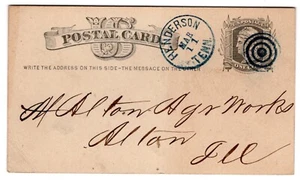 POSTAL CARD
HENDERSON
MAR
TENN.
WRITE THE ADDRESS ON THIS SIDE - THE MESSAGE ON THE OTHER
Alton Agr Works
Alton
Ill